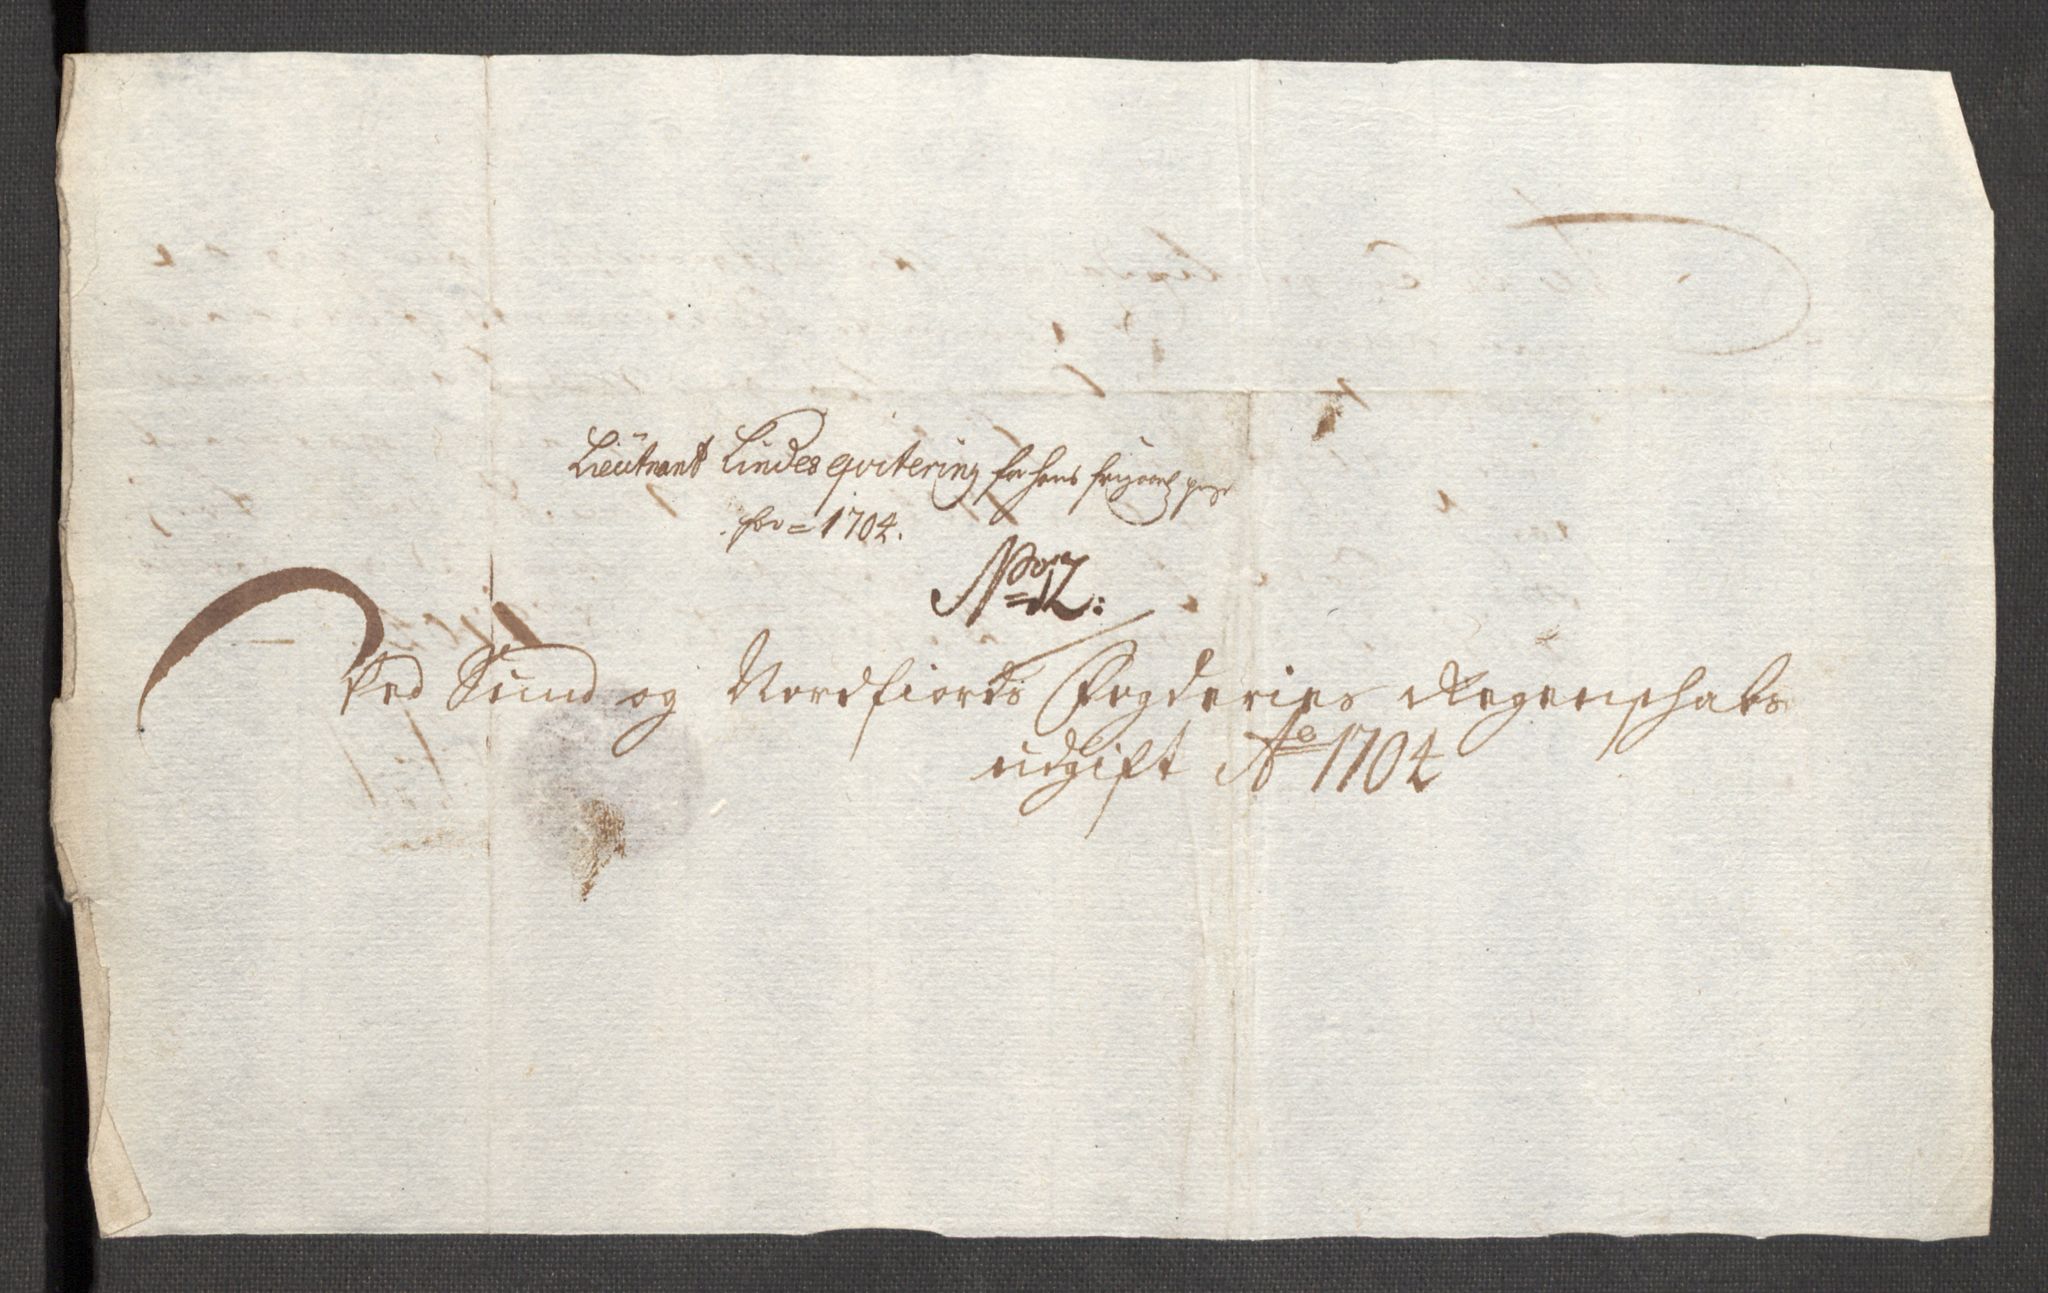 Lieütnant Lindes qvitering for hans
for = 1704.
No 12:
Ved Sünd og Nordfiords Fogderies Regenschabs
üdgift Ao 1704